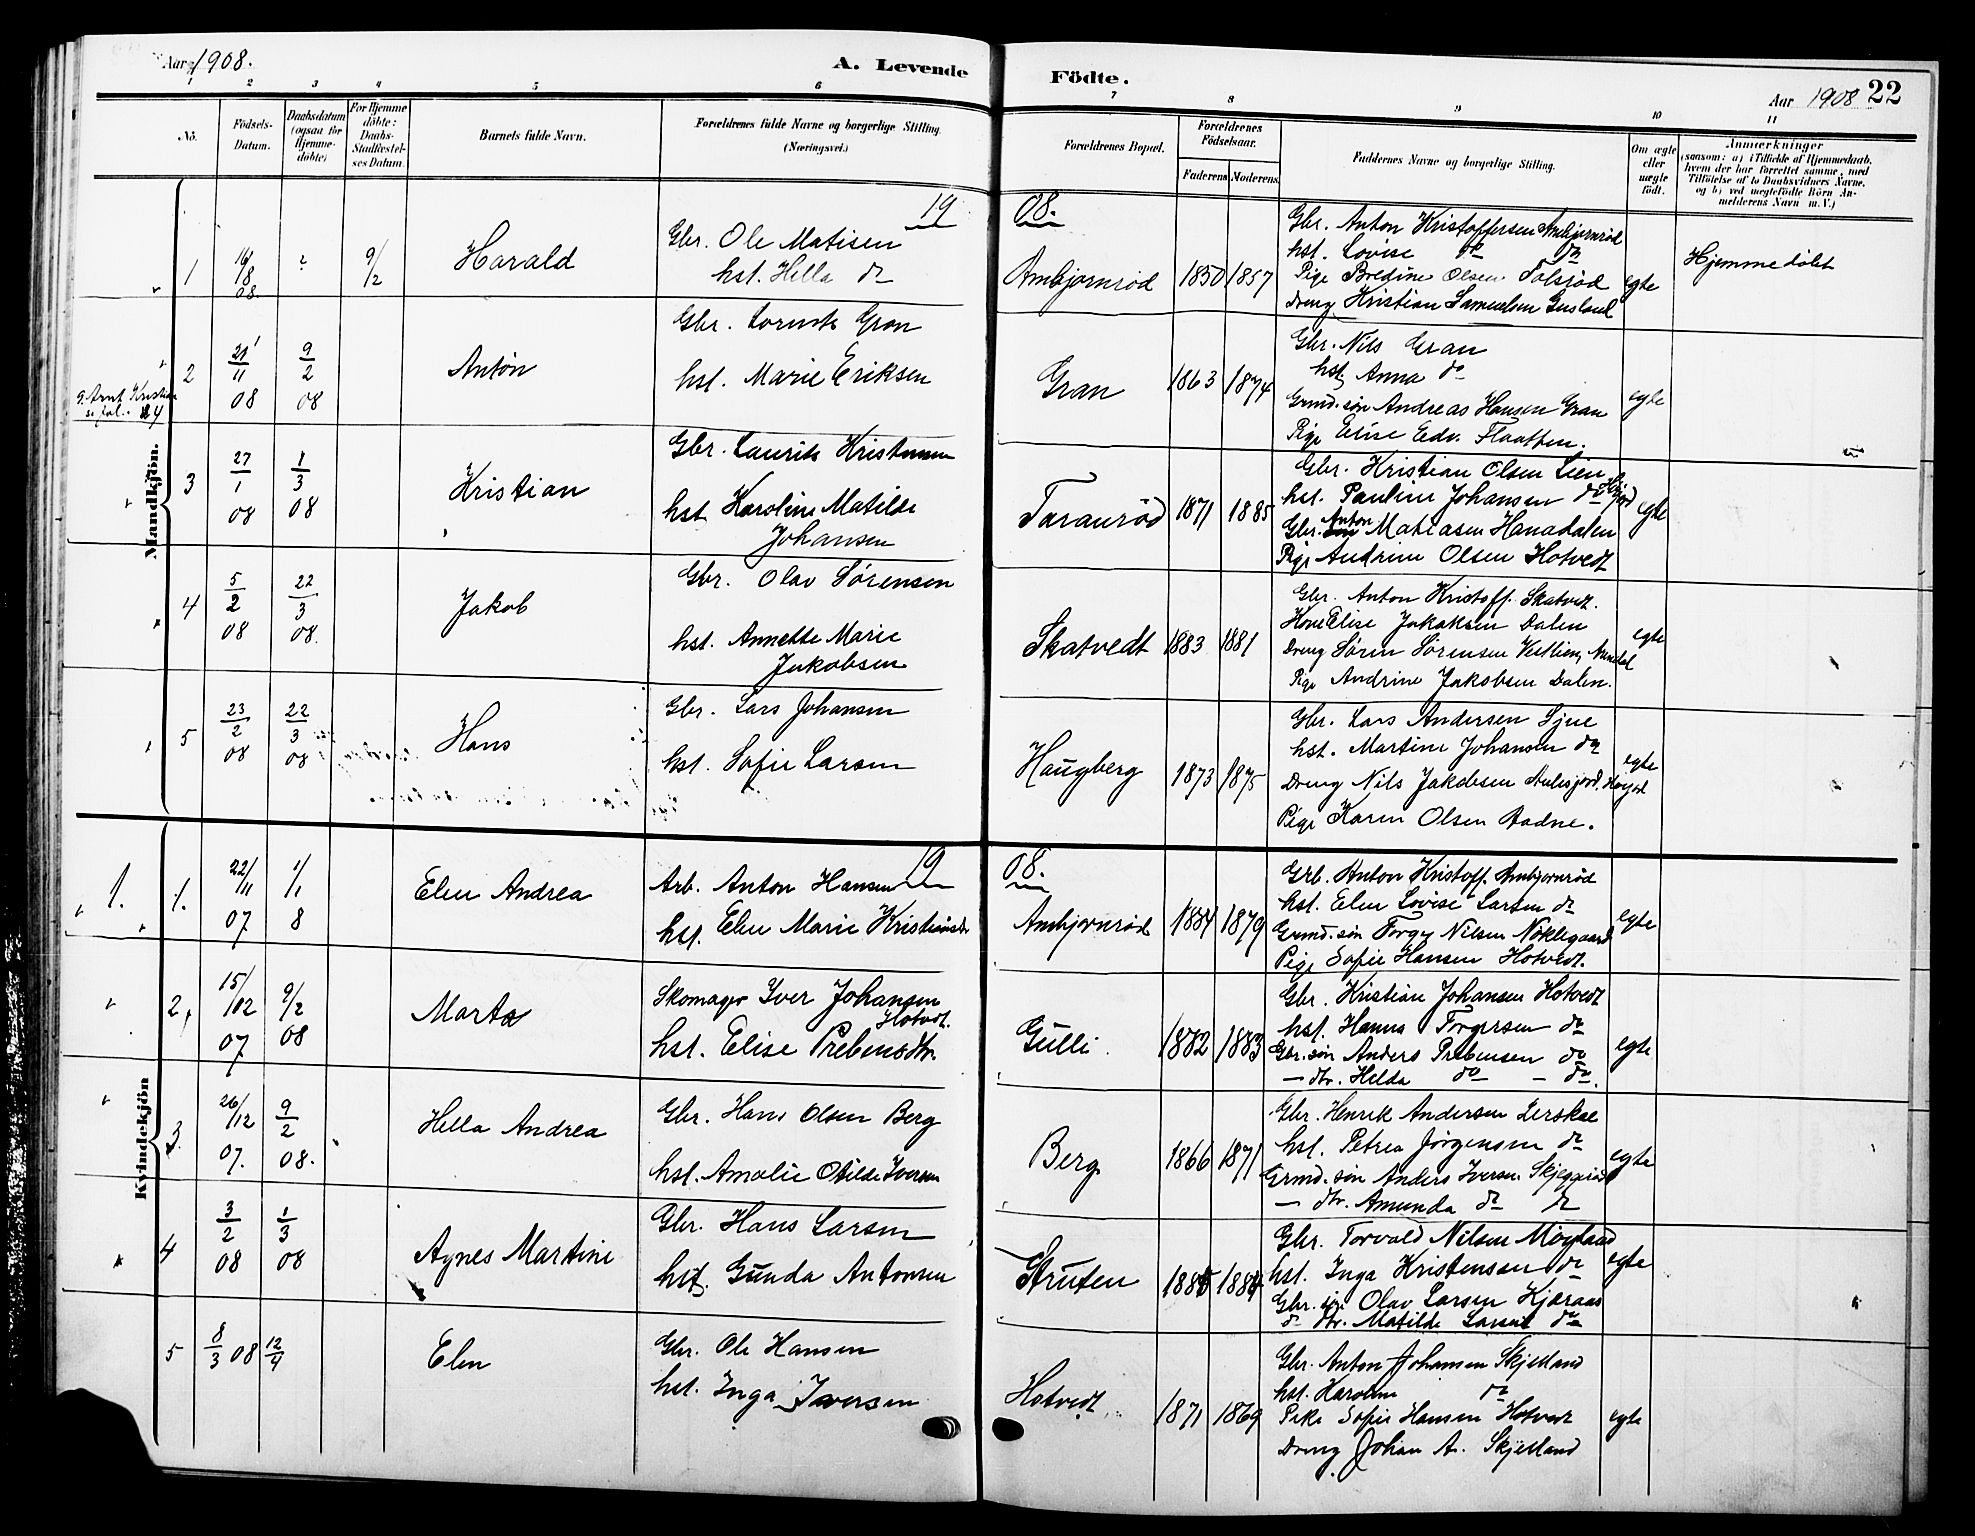 Aar 1908.
A. Levende Födte.
Aar 1908 22
1 2 3 4 5 6 7 8 9 10 11
Nö. Födsels-Datum. Daabsdatum (ogsaa för Hjemme-döbte) For Hjemme döbte: Daabs-Stadfestel-ses Datum. Barnets fulde Navn. Forældrenes fulde Navne og borgerlige Stilling. (Næringsvei.) Forældrenes Bopæl. Forældrenes Födselsaar. Faderens Moderens Faddernes Navne og borgerlige Stilling. Om ægte eller uægte födt. Anmærkninger (saasom: a) i Tilfælde af Hjemmedaab, hvem der har forrettet samme, med Tilföielse af to Daabsvidners Navne, og b) ved uegtefödte Börn An-melderens Navn m. V.)
Mandkjön.
19 08.
1 16/8 08. 9/2 Harald
Gbr. Ole Matisen
hst. Hella do
Ambjørnrød 1850 1857
Gbr. Anton Kristoffersen Ambjørnrød
hst. Lovise do do
Pige Bredine Olsen Tolsrød
Dreng Kristian Samuelsen Gusland
egte
Hjemme døbt
2 21/11 08 9/2 08 Anton
Gbr. Gran
hst. Marie Eriksen
Gran 1863 1874
Gbr. Nils Gran
hst. Anna do
Grmd. søn Andreas Hansen Gran
Pige Elise Edv. Flaatten.
egte
9. Arnt Kristian
se fol. 24
3 27/1 08 1/3 08 Kristian
Gbr. Laurits Kristensen
hst. Karoline Matilde
Johansen
Taranrød 1871 1885
Gbr. Kristian Olsen Lien
hst. Pauline Johansen do
Gbr. Anton Matiasen Hanedalen
Pige Andrine Olsen Hotvedt
egte
4 5/2 08 22/3 08. Jakob
Gbr. Olav Sørensen
hst. Annette Marie
Jakobsen
Skatvedt 1883 1881
Gbr. Anton Kristoff. Skatvedt.
Kone Elise Jakobsen Dalen
Dreng Søren Sørensen
Pige Andrine Jakobsen Dalen.
egte
5 23/2 08 22/3 08 Hans
Gbr. Lars Johansen
hst. Sofie Larsen
Haugberg 1873 1875
Gbr. Lars Andersen Gjue
hst. Martine Johansen do
Dreng Nils Jakobsen
Pige Karen Olsen Aadne.
egte
Kvindekjön
19 08.
1. 1. 22/11 07 1/1 8 Elen Andrea
Arb. Anton Hansen
hst. Elen Marie Kristiansdr
Ambjørnrød 1884 1879
Grb. Anton Kristoff. Ambjørnrød
hst. Elen Lovise Larsen do
Grmd. søn Torger Nilsen Nøklegaard
Pige Sofie Hansen Hotvedt.
egte
2, 15/12 07 9/2 08 Marta
Skomager Iver Johansen
Hotvedt.
hst. Elise Prebensdtr.
Gulli. 1882 1883
Gbr. Kristian Johansen Hotvedt
hst. Hanna Torgersen do
Gbr. søn Anders Prebensen do
— dtr. Helda do — do.
egte
3. 26/12 07. 9/2 08. Hella Andrea
Gbr. Hans Olsen Berg
hst. Amalie Otilde Iversen
Berg 1866 1871
Gbr. Henrik Andersen Lerskal
hst. Petrea Jørgensen do
Grmd. søn Anders Iversen Skjeggerød
— dtr. Amunda do do
egte
4 3/2 08 1/3 08 Agnes Martine
Gbr. Hans Larsen
hst. Gunda Antonsen
Struten
Gbr. Torvald Nilsen Møyland
hst. Inga Kristensen do
Gbr. søn Olav Larsen Hjæraas
do dtr. Matilde Larsen do
egte
5 8/3 08 12/4 Elen
Gbr. Ole Hansen
hst. Inga Iversen
Hotvedt 1871 1869
Gbr. Anton Johansen Skjelland
hst. Karoline do
Pike Sofie Hansen Hotvedt
Dreng Johan A. Skjelland
egte